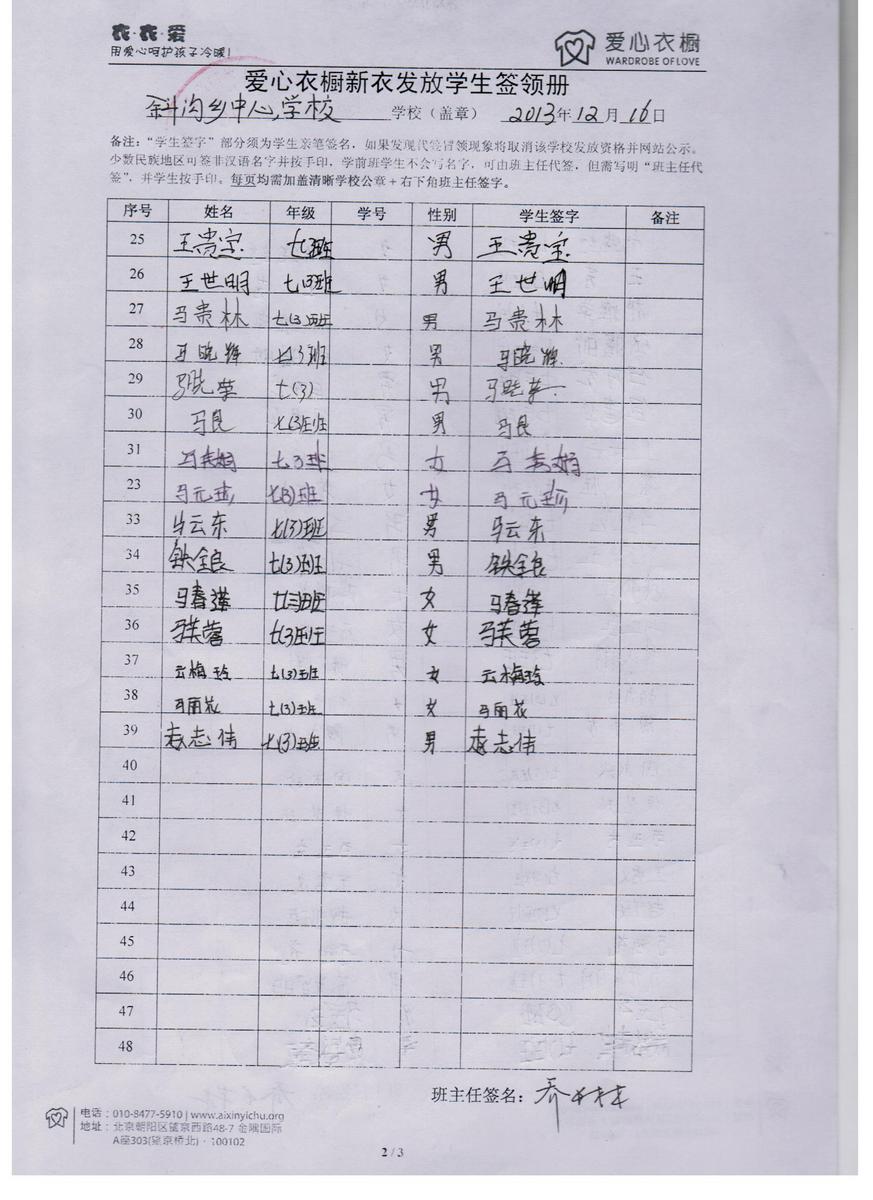 衣·衣·爱
用爱心呵护孩子冷暖!
爱心衣橱
WARDROBE OF LOVE
爱心衣橱新衣发放学生签领册
斜沟乡中心学校 学校（盖章） 2013年12月16日
备注：“学生签字”部分须为学生亲笔签名，如果发现代签冒领现象将取消该学校发放资格并网站公示。
少数民族地区可签非汉语名字并按手印，学前班学生不会写名字，可由班主任代签，但需写明“班主任代
签”，并学生按手印。每页均需加盖清晰学校公章+右下角班主任签字。
序号 姓名 年级 学号 性别 学生签字 备注
25 王贵宝 七3班 男 王贵宝
26 王世明 七13班 男 王世明
27 马贵林 七(3)班 男 马贵林
28 马晓辉 七3班 男 马晓辉
29 七(3) 男
30 马良 七(3)班 男 马良
31 马秀娟 七3班 女 马秀娟
23 马元珍 七(3)班 女 马元珍
33 马云东 七(3)班 男 马云东
34 铁全良 七(3)班 男 铁全良
35 七三班 女
36 马芙蓉 七(3)班 女 马芙蓉
37 云梅玲 七(3)班 女 云梅玲
38 马丽花 七(3)班 女 马丽花
39 袁志伟 七(3)班 男 袁志伟
40
41
42
43
44
45
46
47
48
班主任签名：乔
电话：010-8477-5910 | www.aixinyichu.org
地址：北京朝阳区望京西路48-7 金隅国际
A座303(望京桥北)·100102
2 / 3